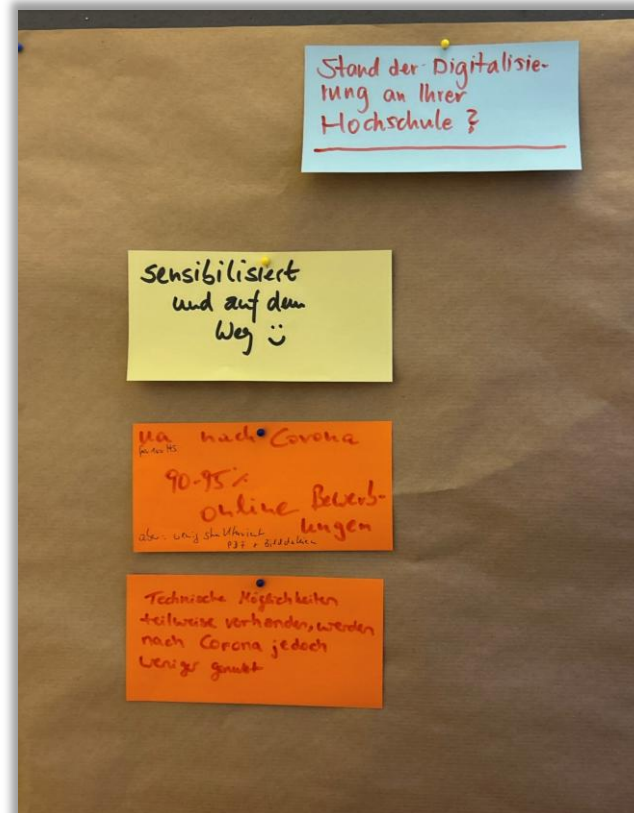 Stand der Digitalisie-
rung an Ihrer
Hochschule?
sensibilisiert
und auf dem
Weg ü
nach Corona
90-95%
online Bewerb-
ungen
aber: wenig strukturiert
PDF + Bilddateien
Technische Möglichkeiten
teilweise vorhanden, werden
nach Corona jedoch
weniger genutzt